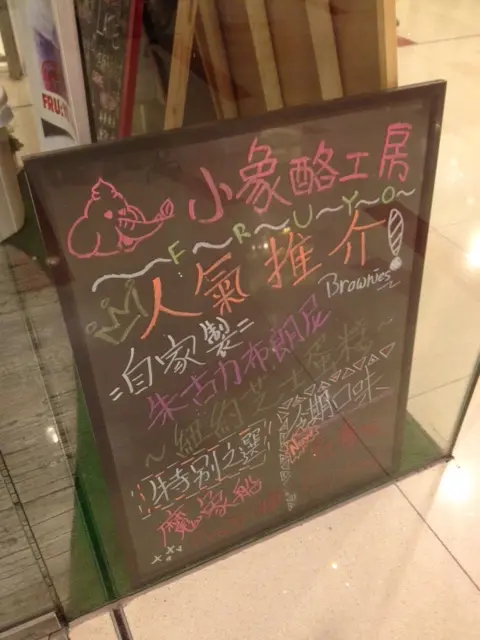 FRU
小象酪工房
F~R~U~Y~O~
人氣推介!
Brownies
=自家製=
朱古力布朗尼
~紐約芝士蛋糕~
特別之選
近期口味
魔象船